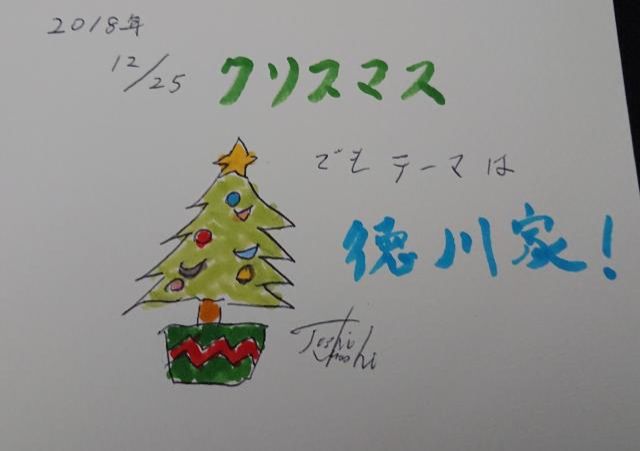 2018年
12/25 クリスマス
でも テーマは
徳川家!